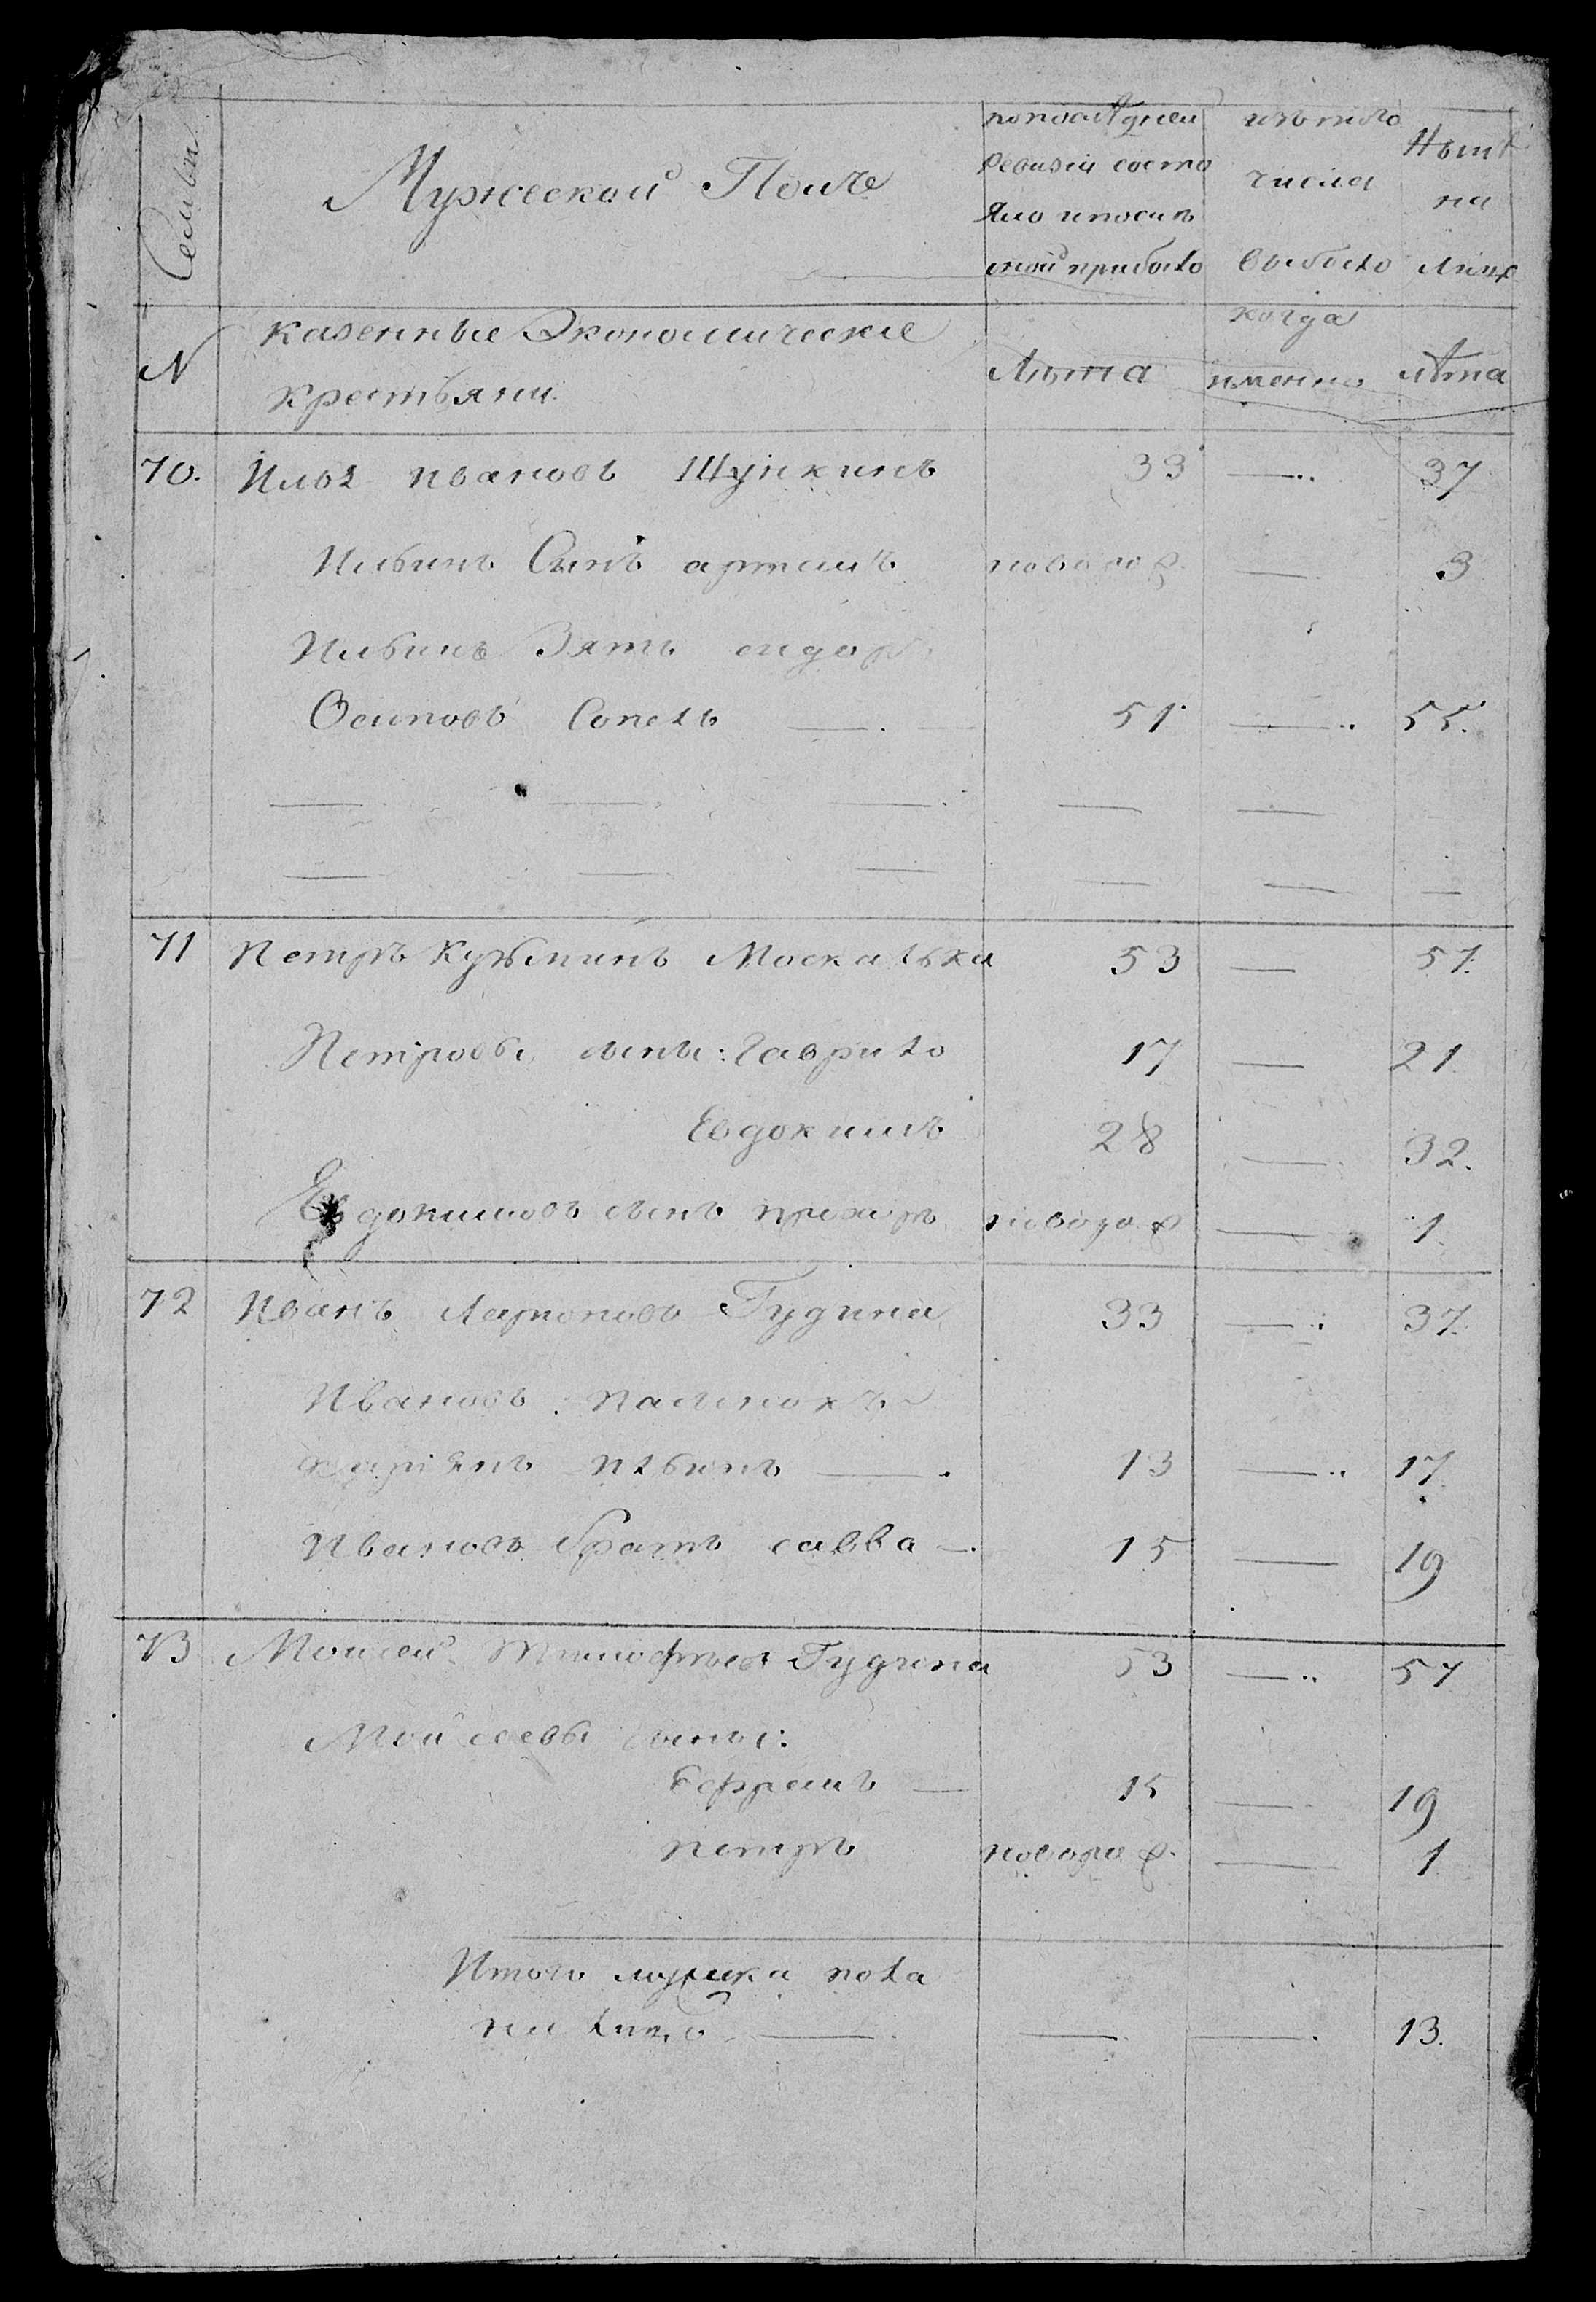 Семьи
Мужеской Полъ
попослѣдней
ревизіи состо
яло ипосль
оной прибыло
изътого
числа
выбыло
Нынѣ
на
лице
N
казенные Экономическіе
крестьяни
Лѣта
когда
именно
лѣта
70. Илья ивановъ Щупкинъ 33 — 37
Ильинъ Сынъ артемъ новорож. — 3
Ильинъ Зять сидор
Осиповъ Сопель — 51 — 55.
71 Петръ Кузьминъ Москалька 53 — 57.
Петровы сыны: Гаврило 17 — 21
Евдокимъ 28 — 32.
Евдокимовъ сынъ прохоръ новорож — 1
72 Иванъ Ларионовъ Гудина 33 — 37.
Ивановъ пасынокъ
киріянъ ильинъ — 13 — 17.
Ивановъ братъ савва — 15 — 19
73 Моисей Тимофѣевъ Гудина 53 — 57
Мойсеевы сыны:
Ефремъ — 15 — 19
петръ новорож. — 1
Итого мужска пола
на лицо — — — 13.